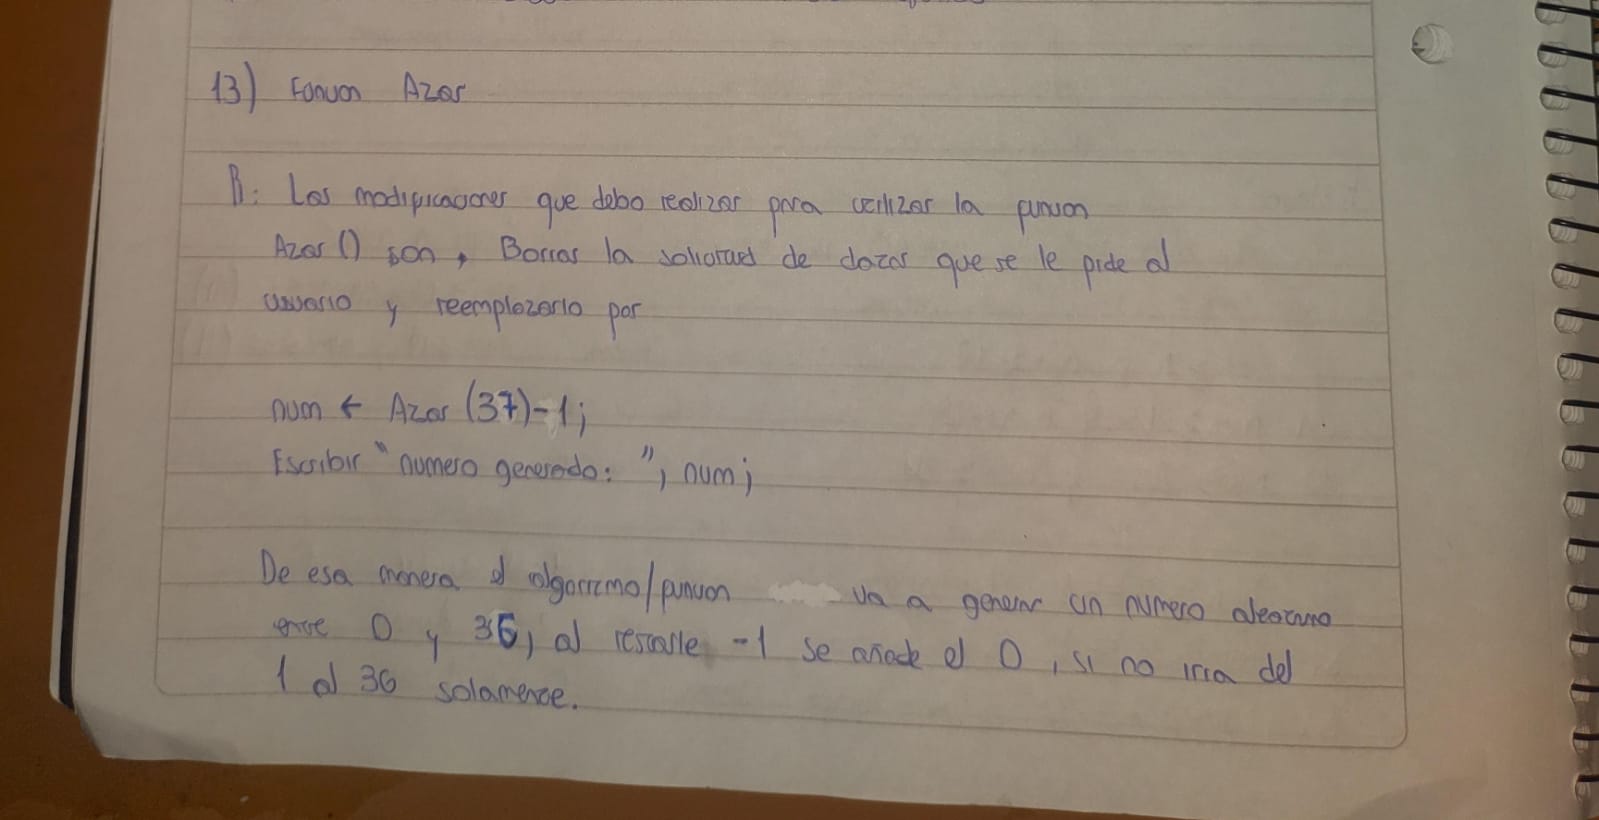 13) Funcion Azar
B: Las modificaciones que debo realizar para utilizar la funcion
Azar () son, Borrar la solicitud de datos que se le pide al
usuario y reemplazarlo por
num ← Azar (37)-1;
Escribir "numero generado: ", num;
De esa manera el algoritmo/funcion va a generar un numero aleatorio
entre 0 y 36, al restarle -1 se añade el 0, si no iria del
1 al 36 solamente.